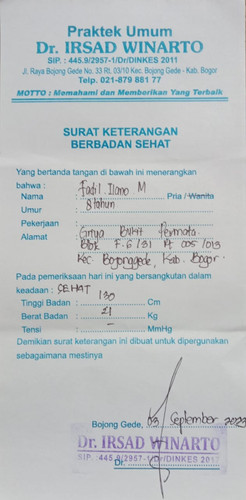 Praktek Umum
Dr. IRSAD WINARTO
SIP. : 445.9/2957-1/Dr/DINKES 2011
Jl. Raya Bojong Gede No. 33 Rt. 03/10 Kec. Bojong Gede - Kab. Bogor
Telp. 021-879 881 77
MOTTO : Memahami dan Memberikan Yang Terbaik
SURAT KETERANGAN
BERBADAN SEHAT
Yang bertanda tangan di bawah ini menerangkan
bahwa :
Nama : Fadil Ilano M Pria / Wanita
Umur : 8 tahun
Pekerjaan :
Alamat : Griya Bukit Permata
Blok F.6/31 Rt 005/013
Kec Bojonggede, Kab. Bogor.
Pada pemeriksaan hari ini yang bersangkutan dalam
keadaan : SEHAT
Tinggi Badan : 130 Cm
Berat Badan : 21 Kg
Tensi : – MmHg
Demikian surat keterangan ini dibuat untuk dipergunakan
sebagaimana mestinya
Bojong Gede, 03 September 2023
Dr. IRSAD WINARTO
SIP. :445.9/2957-1/Dr/DINKES 2011
Dr.